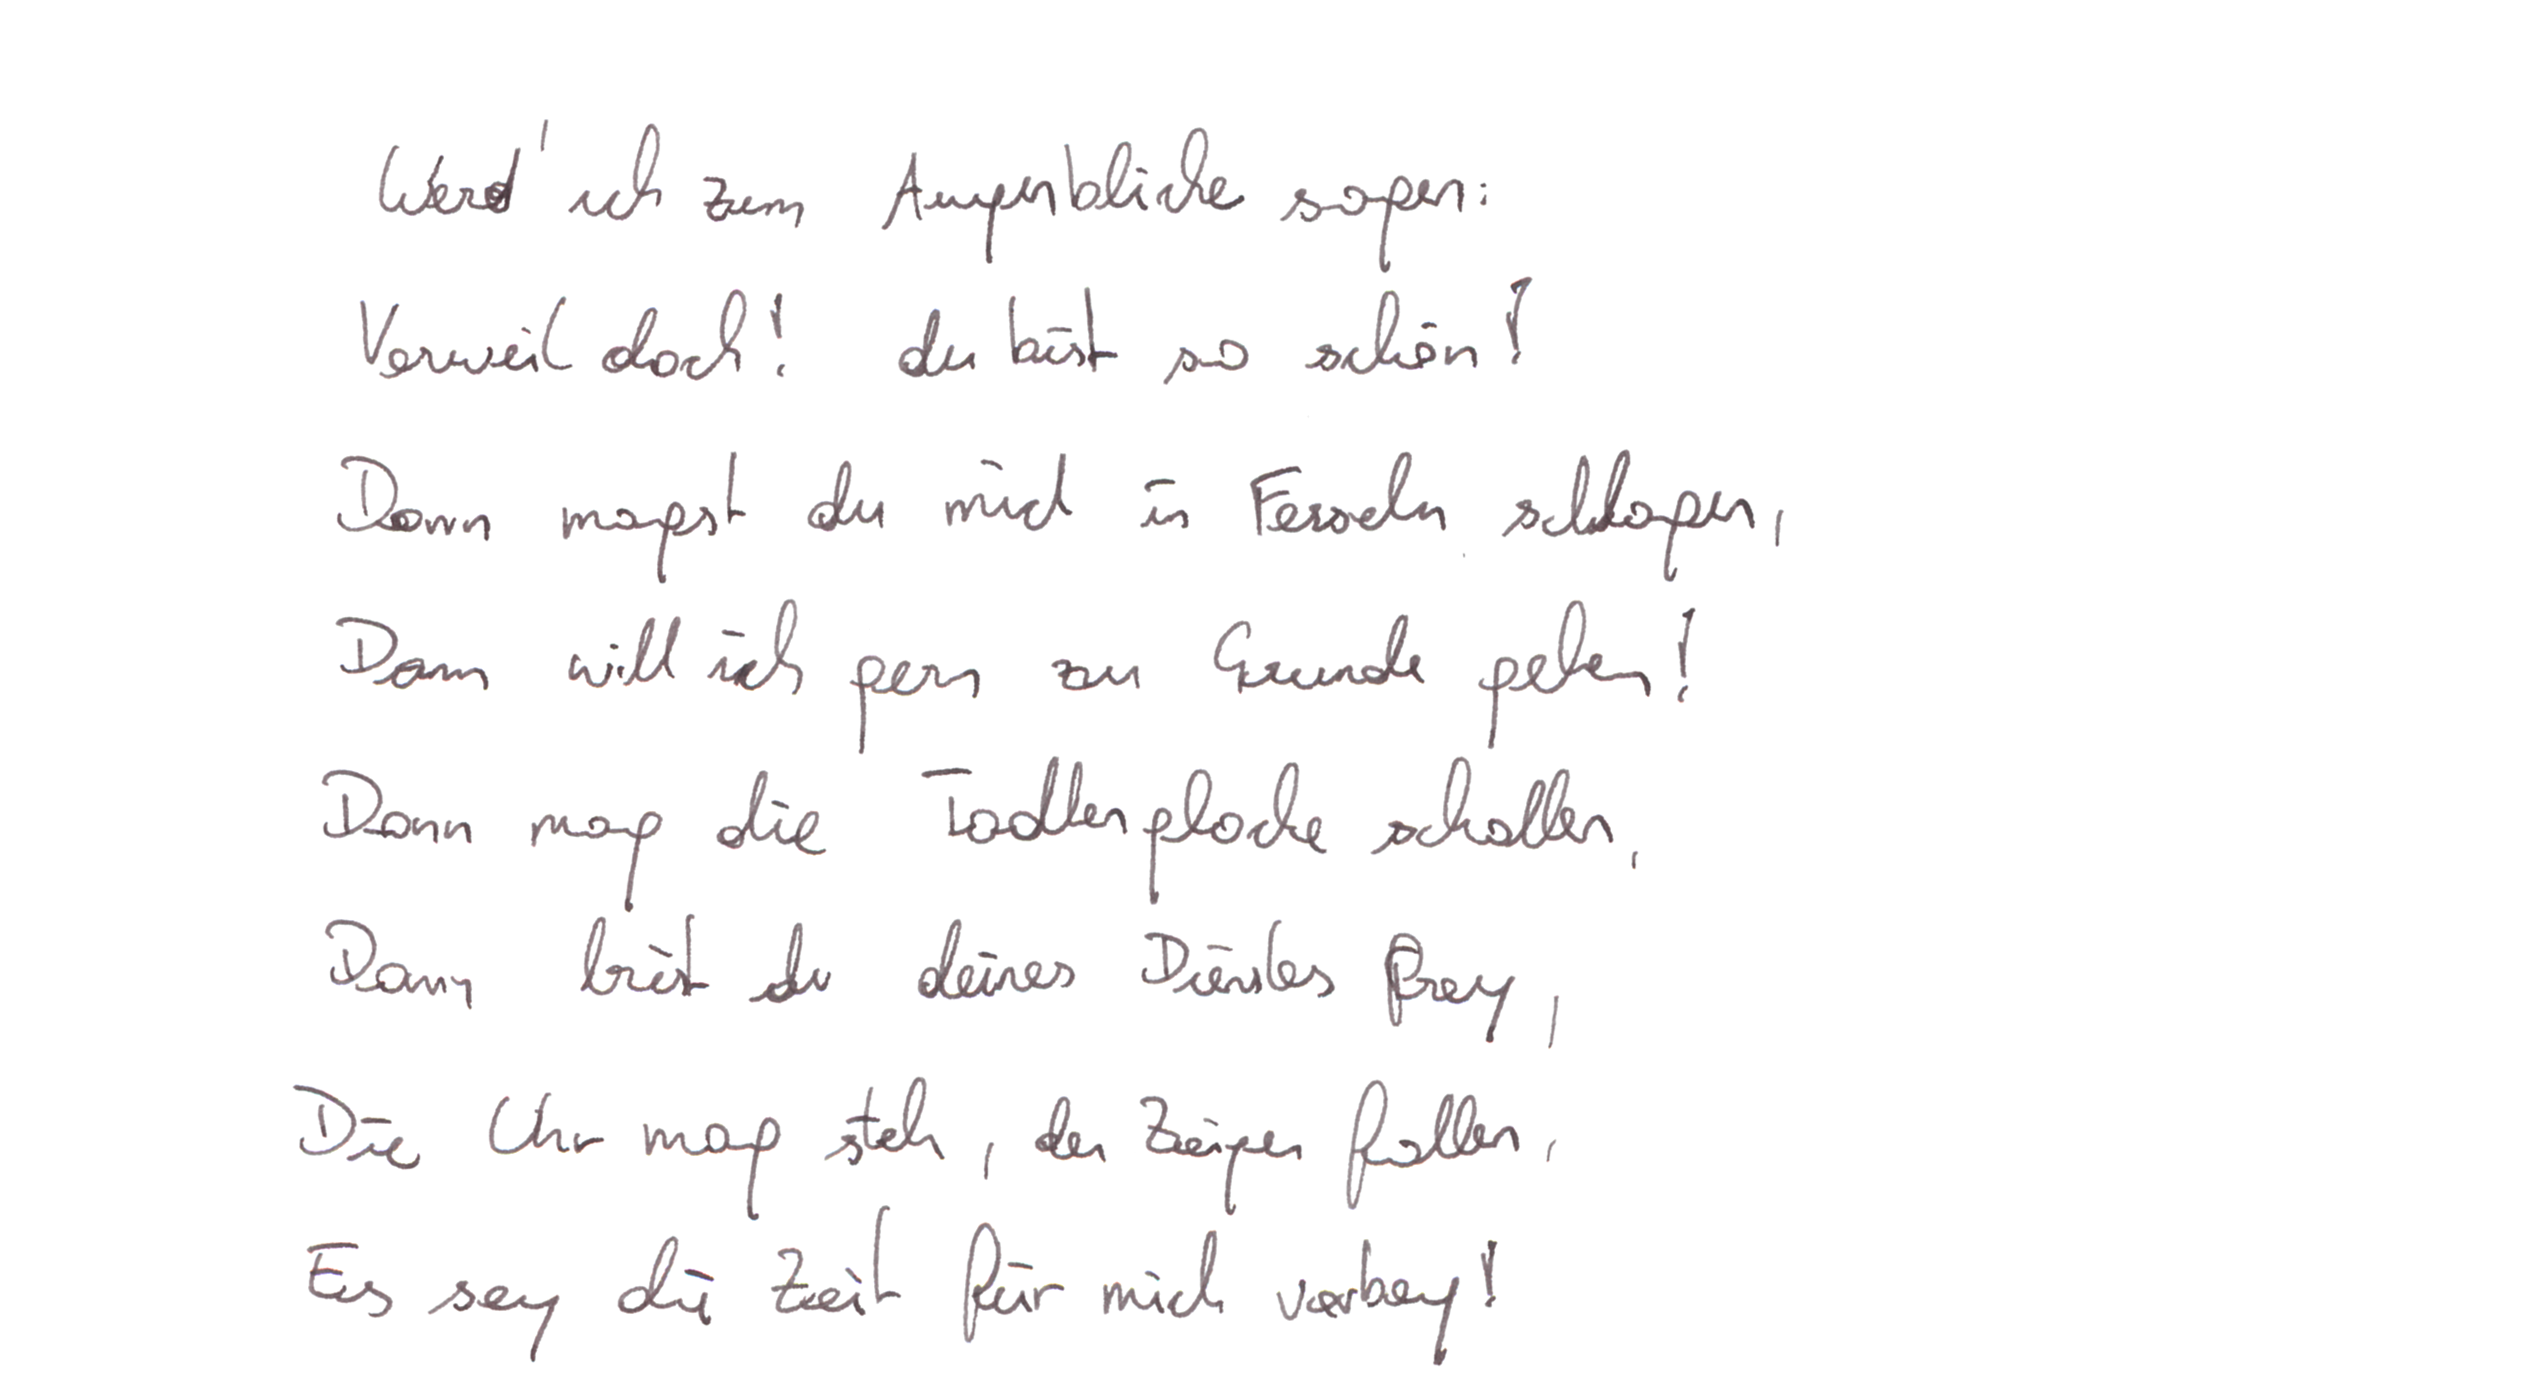 Werd' ich zum Augenblicke sagen:
Verweil doch! du bist so schön!
Dann magst du mich in Fesseln schlagen,
Dann will ich gern zu Grunde gehen!
Dann mag die Todtenglocke schallen,
Dann bist du deines Dienstes frey,
Die Uhr mag steh, der Zeiger fallen,
Es sey die Zeit für mich vorbey!